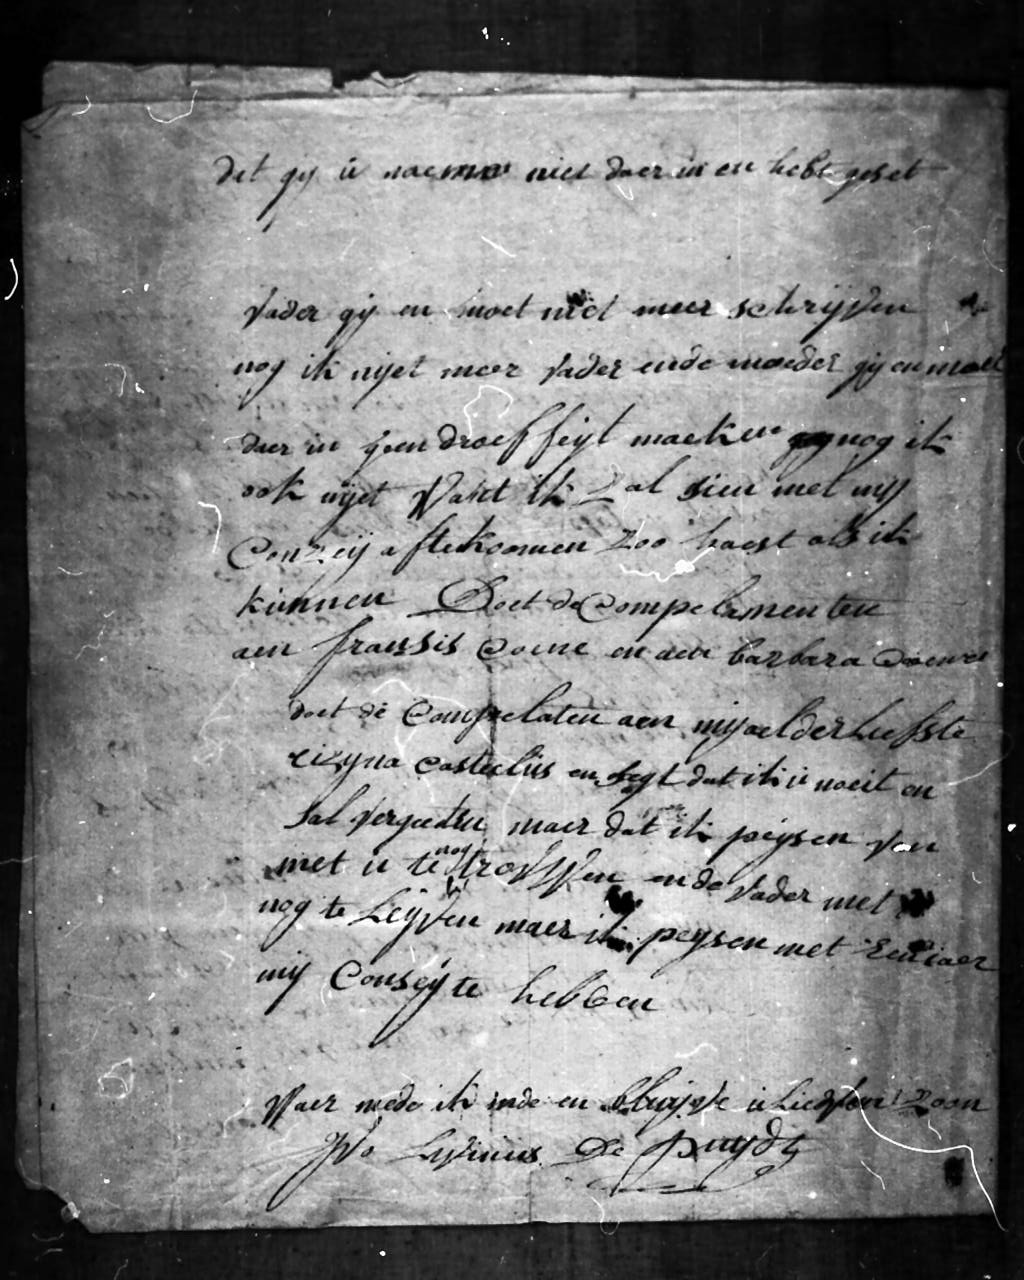 dat gij u naeme niet daer in en hebt geset
Vader gij en moet niet meer schrijven
nog ik nijet meer vader ende moeder gij en moet
daer in geen droeffeyt maeken nog ik
ook nijet Want ik Zal sien met mij
Conzeij afte koomen Zoo haest als ik
kunnen Doet de Compelementen
aen franssis Coene en aen barbara Coene
doet de Compelaten aen mij alderliefste
Castelus en segt dat ik u noeit en
sal vergeten maer dat ik peijsen van
met u te nog trowwen ende vader met
nog te Leijven maer ik peysen met Een iaer
mij Conseij te hebben
Waer mede ik inde en blijve u Liedsten Zoon
Ivo Livinus De Puydt